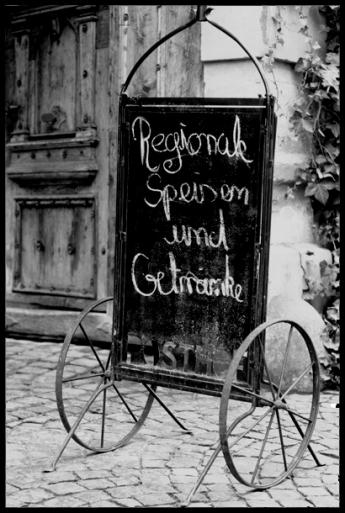 Regionale
Speisen
und
Getränke